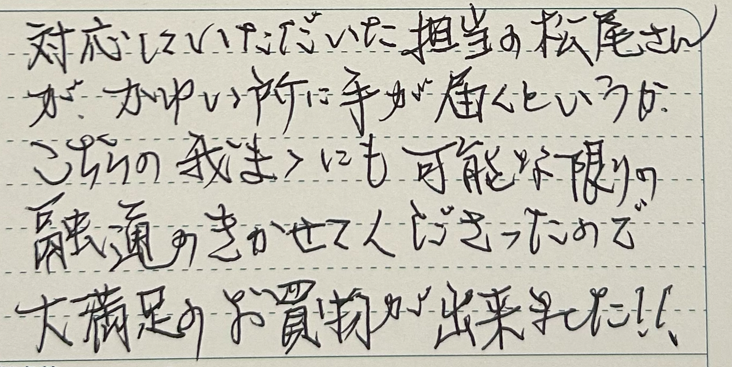 対応していただいた担当の松尾さん
が、かゆい所に手が届くというか、
こちらの我がまゝにも可能な限りの
融通のきかせてくださったので
大満足のお買物が出来ました!!